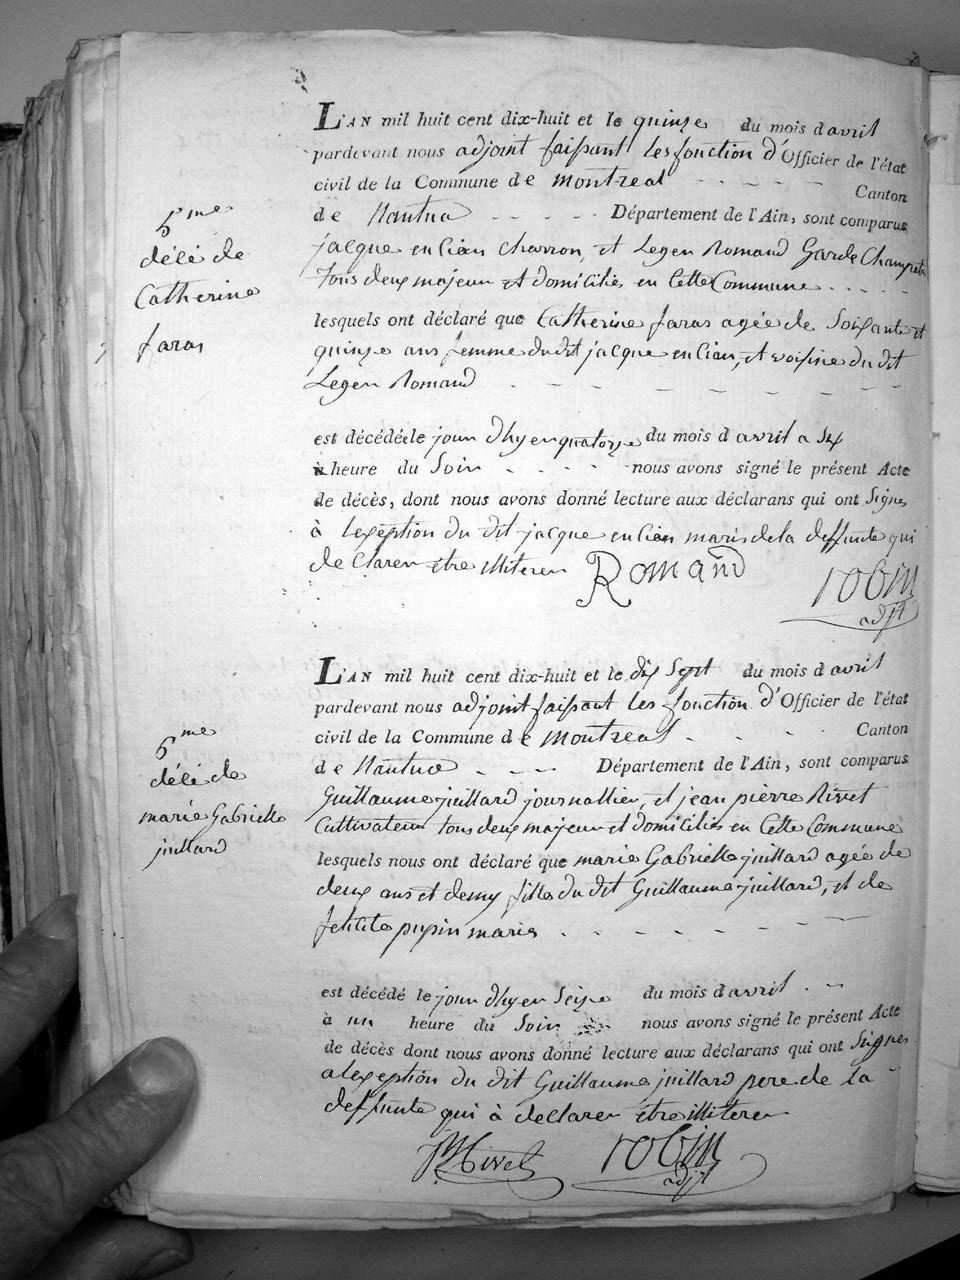 L'AN mil huit cent dix-huit et le quinze du mois d avril
pardevant nous adjoint faissant les fonction d'Officier de l'état
civil de la Commune de Montreal Canton
de Nantua Département de l'Ain, sont comparus
5me
décé de
Catherine
faras
jacque en Cian Charron, et Legen Romand Garde Champetr
tous deux majeur et domiciliés en Cette Commune
lesquels ont déclaré que Catherine faras agée de Soixante et
quinze ans femme du dit jacque en Cian, et voisine du dit
Legen Romand
est décédée le jour d'hyer quatorze du mois d avril a six
heure du Soir nous avons signé le présent Acte
de décès, dont nous avons donné lecture aux déclarans qui ont Signes
à l'exeption du dit jacque en Cian maris de la deffunte qui
de Claren etre illiteren Romand robin
adjt
L'AN mil huit cent dix-huit et le dix Sept du mois d avril
pardevant nous adjoint faissant les fonction d'Officier de l'état
civil de la Commune de Montreal Canton
de Nantua Département de l'Ain, sont comparus
6me
décé de
marie Gabrielle
juillard
Guillaume juillard journallier, et jean pierre Rivet
Cultivateur tous deux majeur et domiciliés en Cette Commune
lesquels nous ont déclaré que marie Gabrielle juillard agée de
deux ans et demy fille du dit Guillaume juillard, et de
felicite pupin maries
est décédé le jour d'hyer Seize du mois d avril
à un heure du Soir nous avons signé le présent Acte
de décès dont nous avons donné lecture aux déclarans qui ont Signes
a lexeption du dit Guillaume juillard pere de la
deffunte qui à declaren etre illiteren
Rivet robin
adjt